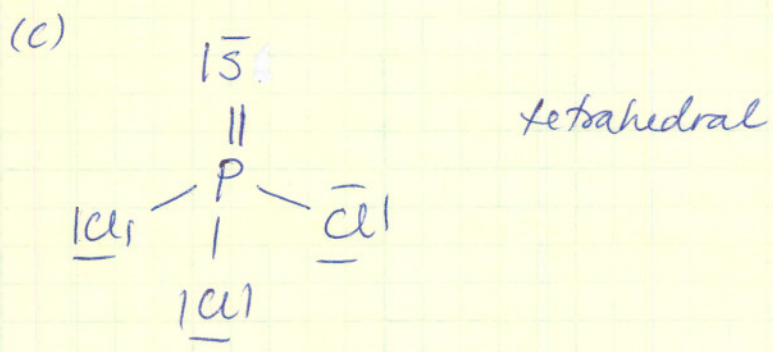 (c)
|S
||
P
|Cl| Cl|
|Cl|
tetrahedral